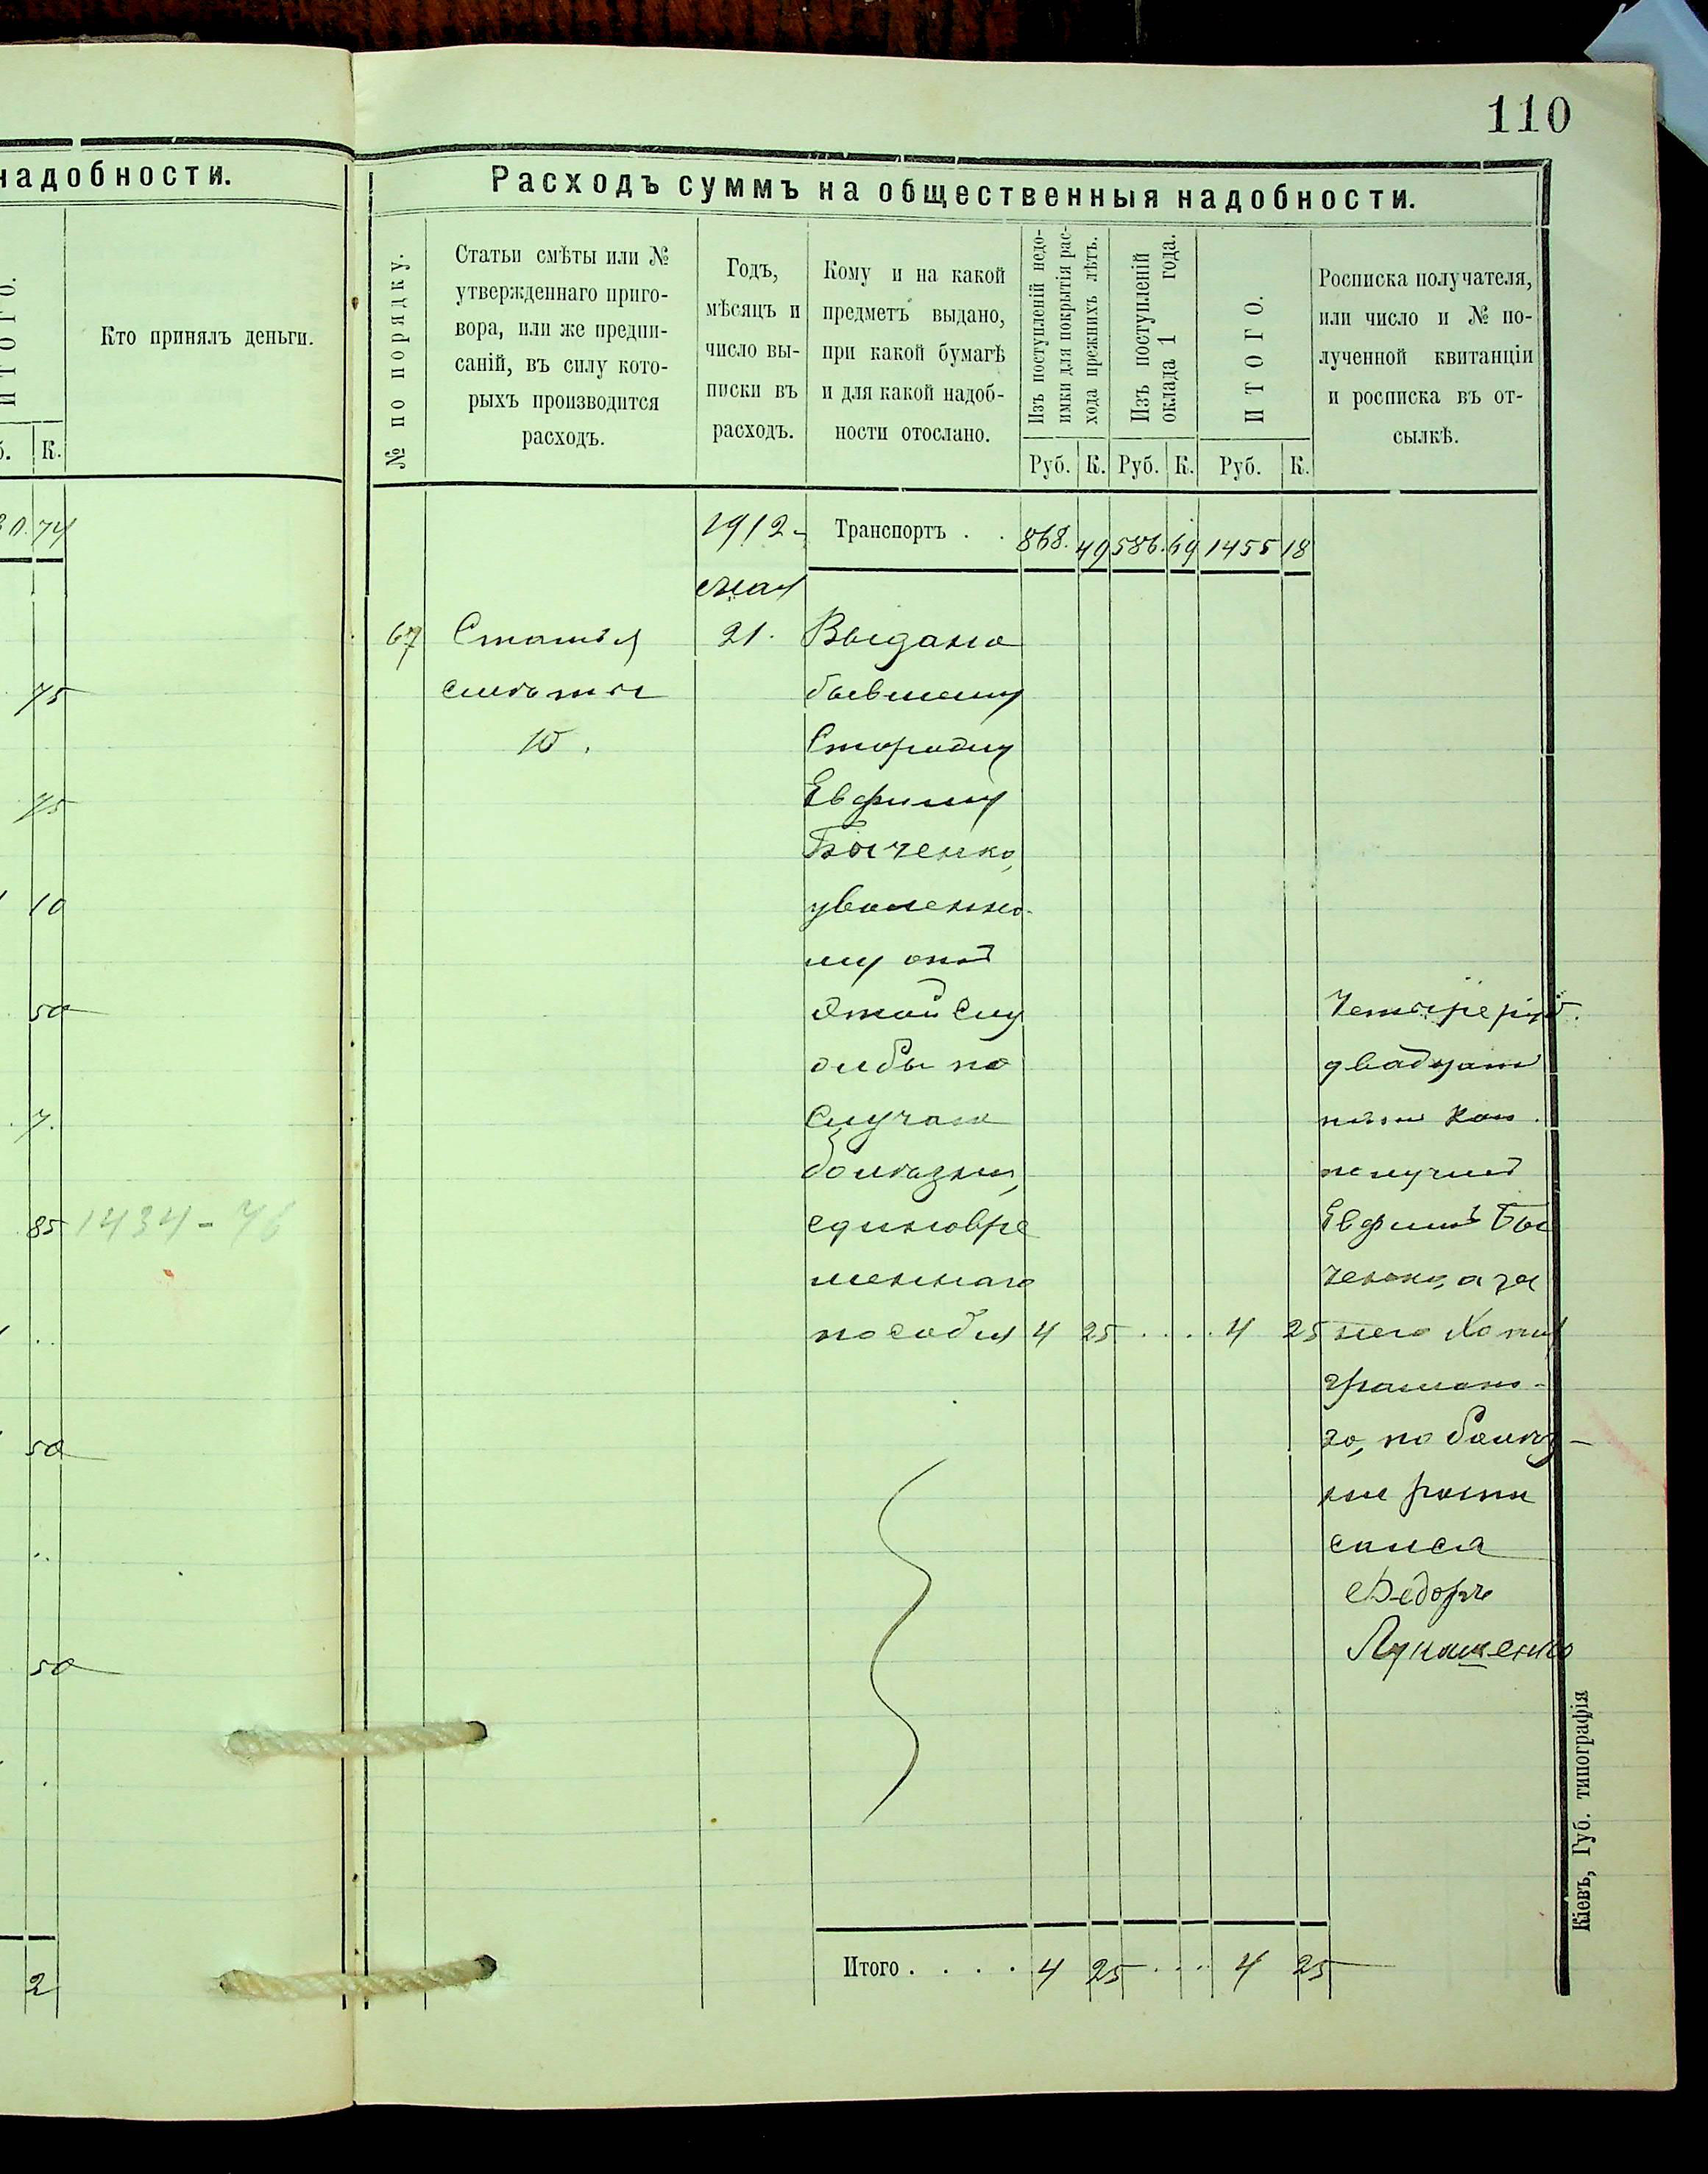 110
надобности.
ИТОГО.
Кто принялъ деньги.
К.
74
75
75
10
50
7.
85 1434-76
50
50
2
Расходъ суммъ на общественныя надобности.
№ по порядку.
Статьи смѣты или №
утвержденнаго приго-
вора, или же предпи-
саній, въ силу кото-
рыхъ производится
расходъ.
Годъ,
мѣсяцъ и
число вы-
писки въ
расходъ.
Кому и на какой
предметъ выдано,
при какой бумагѣ
и для какой надоб-
ности отослано.
Изъ поступленій недо-
имки для покрытія рас-
хода прежнихъ лѣтъ.
Изъ поступленій
оклада 1 года.
ИТОГО.
Росписка получателя,
или число и № по-
лученной квитанціи
и росписка въ от-
сылкѣ.
Руб. К. Руб. К. Руб. К.
1912 Транспортъ . . 868. 49 586. 69 1455 18
мая
67 Статья 21. Выдано
смѣты бывшему
10. Сторожу
Евфиму
Быченко,
уволенно-
му отъ
этой слу
жбы по
случаю
болѣзни,
единовре
меннаго
пособія 4 25 . . . . 4 25
Четыре руб.
двадцать
пять коп.
получилъ
Евфимъ Бы
ченко, а за
него хотя
грамотна-
го, по болѣз-
ни роспи
сался
Федоръ
Лукашенко
Итого . . . . 4 25 . . . 4 25
Кіевъ, Губ. типографія